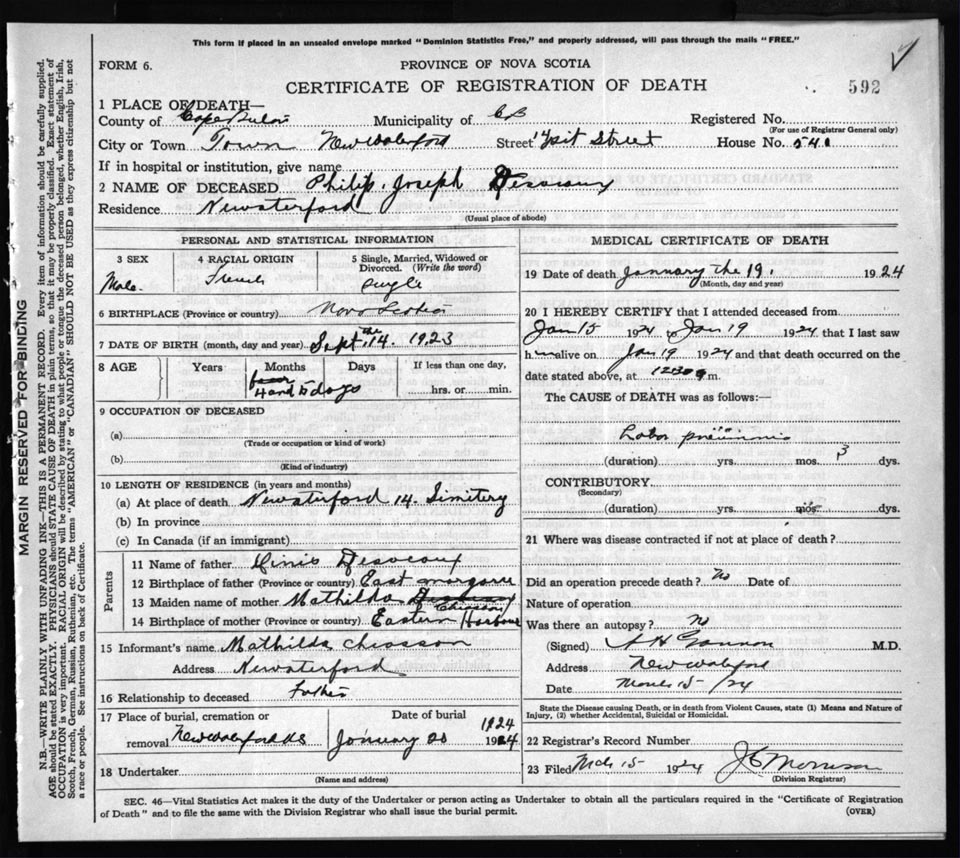 This form if placed in an unsealed envelope marked "Dominion Statistics Free," and properly addressed, will pass through the mails "FREE."
FORM 6.
PROVINCE OF NOVA SCOTIA
CERTIFICATE OF REGISTRATION OF DEATH
592
1 PLACE OF DEATH—
County of Cape Breton Municipality of CB Registered No.
(For use of Registrar General only)
City or Town Town New Waterford Street Street House No. 540
If in hospital or institution, give name
2 NAME OF DECEASED Philip Joseph Desveaux
Residence Newaterford
(Usual place of abode)
PERSONAL AND STATISTICAL INFORMATION
3 SEX
Male
4 RACIAL ORIGIN
French
5 Single, Married, Widowed or Divorced. (Write the word)
Single
6 BIRTHPLACE (Province or country) Nova Scotia
7 DATE OF BIRTH (month, day and year) Sept the 14. 1923
8 AGE Years Months Days If less than one day,
4 and 5 days
hrs. or min.
9 OCCUPATION OF DECEASED
(a)
(Trade or occupation or kind of work)
(b)
(Kind of industry)
10 LENGTH OF RESIDENCE (in years and months)
(a) At place of death Newaterford 14. Simitery
(b) In province
(c) In Canada (if an immigrant)
Parents
11 Name of father Desveaux
12 Birthplace of father (Province or country) East margaree
13 Maiden name of mother Mathilda Chiasson
14 Birthplace of mother (Province or country) Eastern Harbour
15 Informant's name Mathilda cheosson
Address Newaterford
16 Relationship to deceased
17 Place of burial, cremation or removal New Waterford N.S
Date of burial
1924
January 20 1924
18 Undertaker
(Name and address)
MEDICAL CERTIFICATE OF DEATH
19 Date of death January the 19. 1924
(Month, day and year)
20 I HEREBY CERTIFY that I attended deceased from
Jan 15 1924 to Jan 19 1924 that I last saw
him alive on Jan 19 1924 and that death occurred on the
date stated above, at 12.30 m.
The CAUSE of DEATH was as follows:—
Lobar pneumonia
(duration) yrs. mos. 3 dys.
CONTRIBUTORY
(Secondary)
(duration) yrs. mos. dys.
21 Where was disease contracted if not at place of death?
Did an operation precede death? No Date of
Nature of operation
Was there an autopsy? No
(Signed) Gannon M.D.
Address New Waterford
Date March 15/24
State the Disease causing Death, or in death from Violent Causes, state (1) Means and Nature of
Injury, (2) whether Accidental, Suicidal or Homicidal.
22 Registrar's Record Number
23 Filed Mch 15 1924 Morrison
(Division Registrar)
SEC. 46—Vital Statistics Act makes it the duty of the Undertaker or person acting as Undertaker to obtain all the particulars required in the "Certificate of Registration
of Death" and to file the same with the Division Registrar who shall issue the burial permit.
(OVER)
MARGIN RESERVED FOR BINDING
N.B.—WRITE PLAINLY WITH UNFADING INK—THIS IS A PERMANENT RECORD. Every item of information should be carefully supplied.
AGE should be stated EXACTLY. PHYSICIANS should STATE CAUSE OF DEATH in plain terms, so that it may be properly classified. Exact statement of
OCCUPATION is very important. RACIAL ORIGIN will be described by stating to what people or tongue the deceased person belonged, whether English, Irish,
Scotch, French, German, Russian, Ruthenian, etc. The terms "AMERICAN" or "CANADIAN" SHOULD NOT BE USED as they express citizenship but not
a race or people. See instructions on back of Certificate.